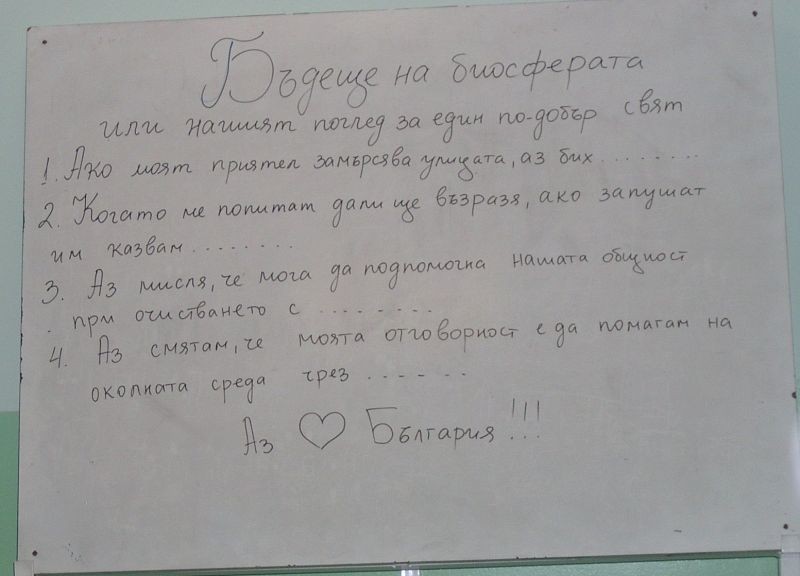 Бъдеще на биосферата
или нашият поглед за един по-добър свят
1. Ако моят приятел замърсява улицата, аз бих ........
2. Когато ме попитат дали ще възразя, ако запушат
им казвам ........
3. Аз мисля, че мога да подпомогна нашата общност
при очистването с ........
4. Аз смятам, че моята отговорност е да помагам на
околната среда чрез ......
Аз ♡ България !!!